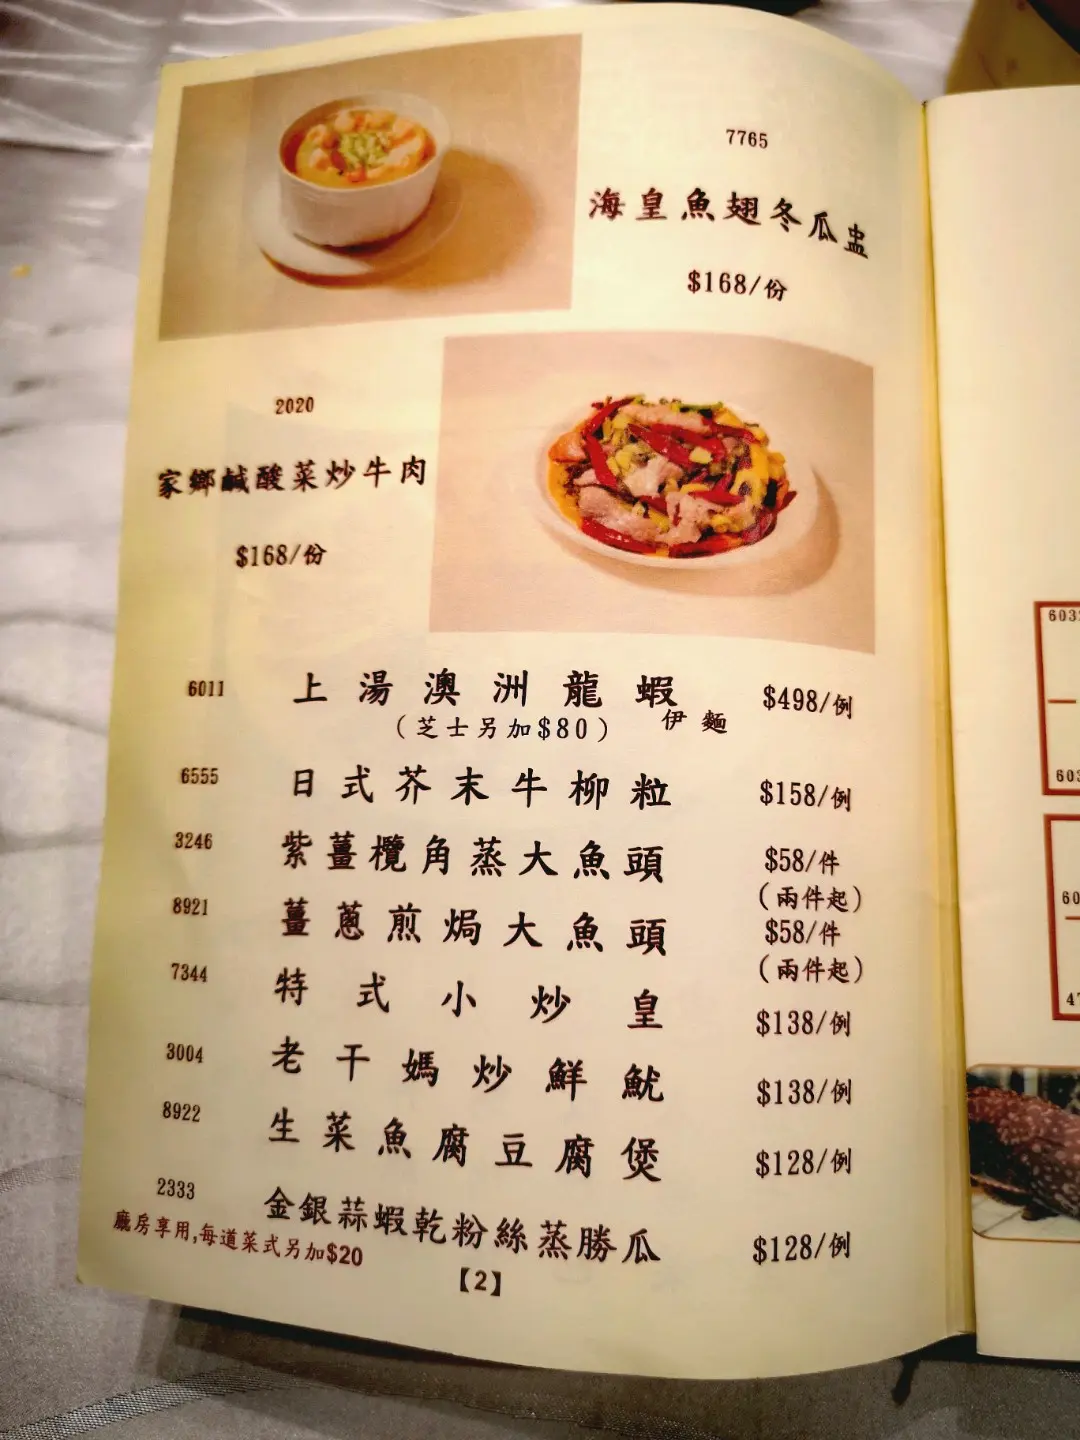 7765
海皇魚翅冬瓜盅
$168/份
2020
家鄉鹹酸菜炒牛肉
$168/份
6011 上湯澳洲龍蝦 $498/例
(芝士另加$80) 伊麵
6555 日式芥末牛柳粒 $158/例
3246 紫薑欖角蒸大魚頭 $58/件
(兩件起)
8921 薑蔥煎焗大魚頭 $58/件
(兩件起)
7344 特式小炒皇 $138/例
3004 老干媽炒鮮魷 $138/例
8922 生菜魚腐豆腐煲 $128/例
2333 金銀蒜蝦乾粉絲蒸勝瓜 $128/例
廳房享用,每道菜式另加$20
【2】